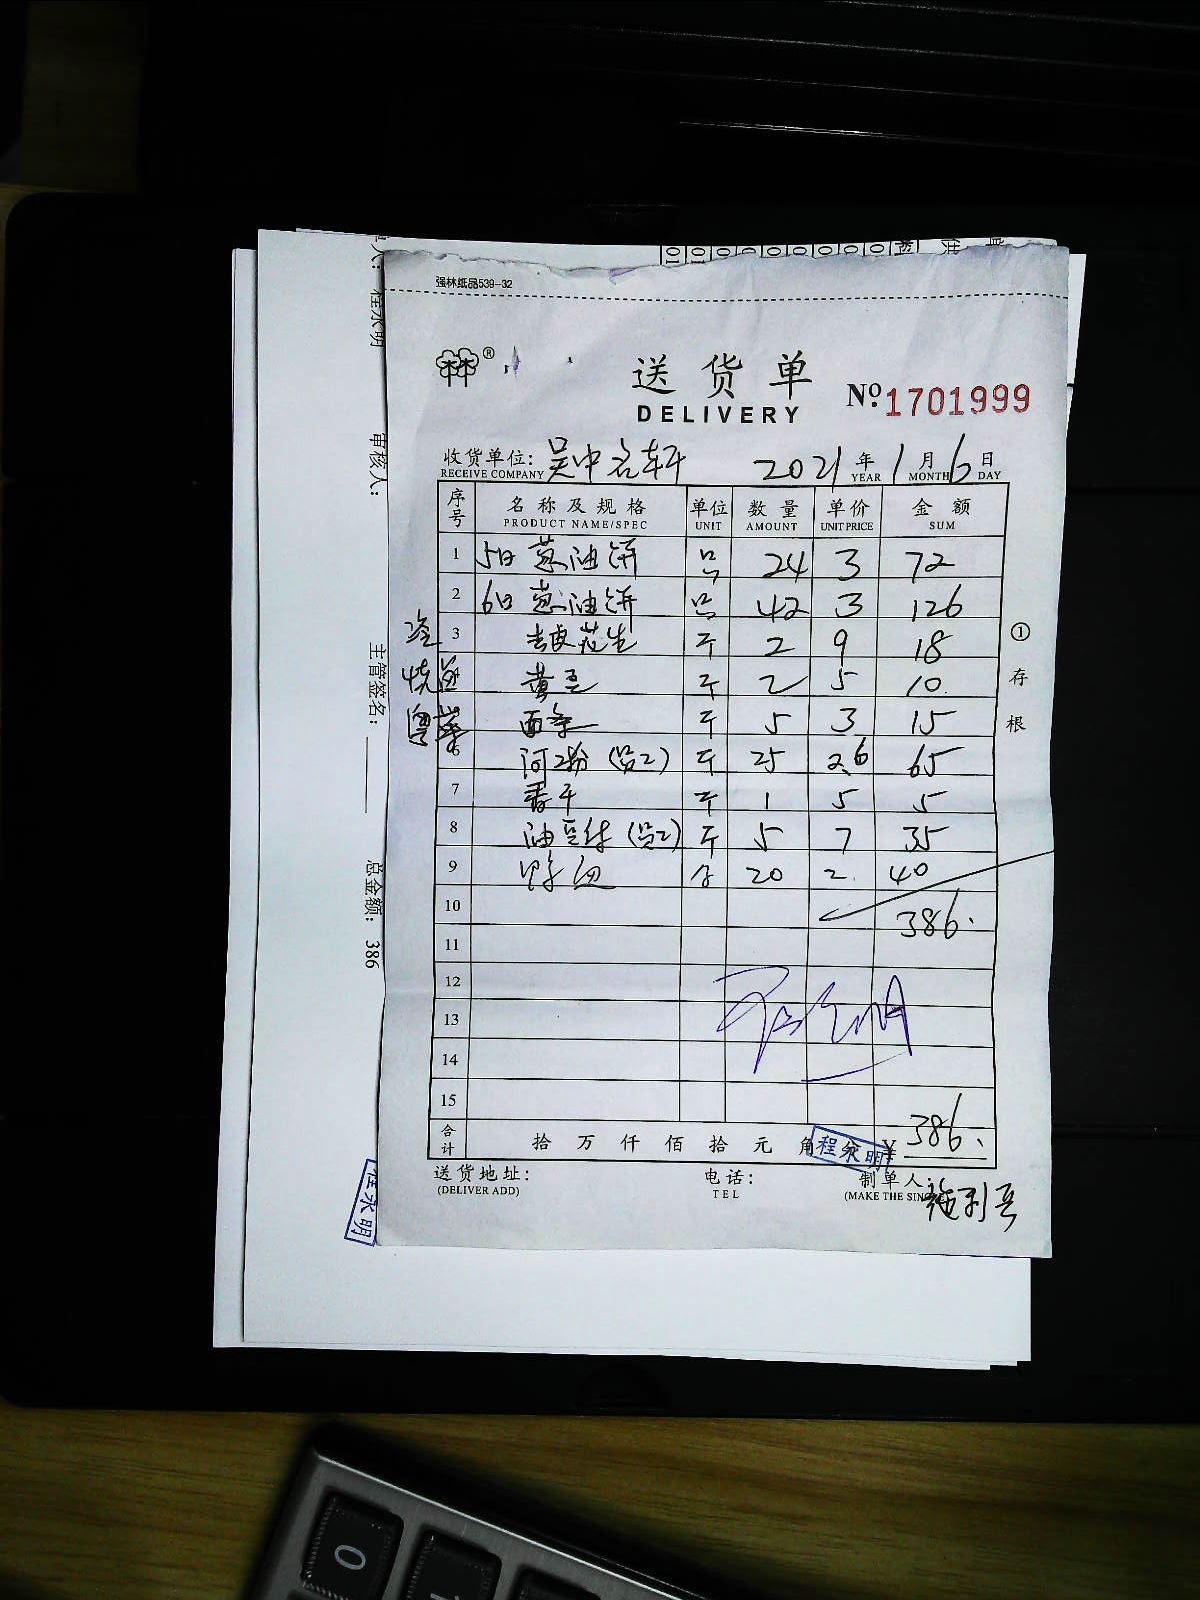 强林纸品539-32
®
送货单
DELIVERY
№ 1701999
收货单位: 吴中名轩 2021 年 1 月 6 日
RECEIVE COMPANY YEAR MONTH DAY
序号 名称及规格 单位 数量 单价 金额
PRODUCT NAME/SPEC UNIT AMOUNT UNIT PRICE SUM
1 5日葱油饼 24 3 72
2 6日葱油饼 42 3 126
3 花生 斤 2 9 18
黄豆 斤 2 5 10
面条 斤 5 3 15
6 河粉 斤 25 2.6 65
7 香干 斤 1 5 5
8 油豆 斤 5 7 35
9 20 2 40
10 386.
11
12
13
14
15
合计 拾万仟佰拾元角分 ¥ 386.
程永明
送货地址: 电话: 制单人:
(DELIVER ADD) TEL (MAKE THE SING
①存根
粤菜
程永明
审核人:
主管签名:
总金额: 386
程永明
0